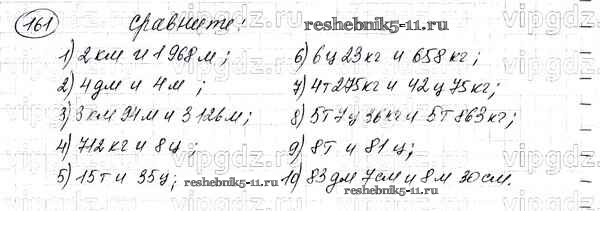 161 Сравните: reshebnik5-11.ru
1) 2 км и 1968 м;
2) 4 дм и 4 м ;
3) 3 км 94 м и 3126 м;
4) 712 кг и 8 ц;
5) 15 т и 35 ц; reshebnik5-11.ru
6) 6 ц 23 кг и 658 кг;
7) 4т 275кг и 42 ц 75 кг;
8) 5т 7 ц 36 кг и 5т 863 кг;
9) 8т и 81 ц;
10) 83 дм 7 см и 8 м 30 см.
reshebnik5-11.ru
vipgdz.ru
vipgdz.ru
vipgdz.ru